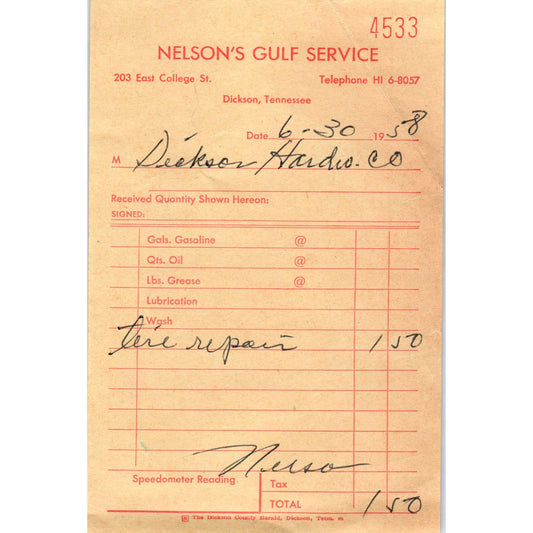 4533
NELSON'S GULF SERVICE
203 East College St. Telephone HI 6-8057
Dickson, Tennessee
Date 6-30 1958
M Dickson Hardw. CO
Received Quantity Shown Hereon:
SIGNED:
Gals. Gasoline @
Qts. Oil @
Lbs. Grease @
Lubrication
Wash
tire repair 1 50
Speedometer Reading
Tax
TOTAL 1 50
The Dickson County Herald, Dickson, Tenn.